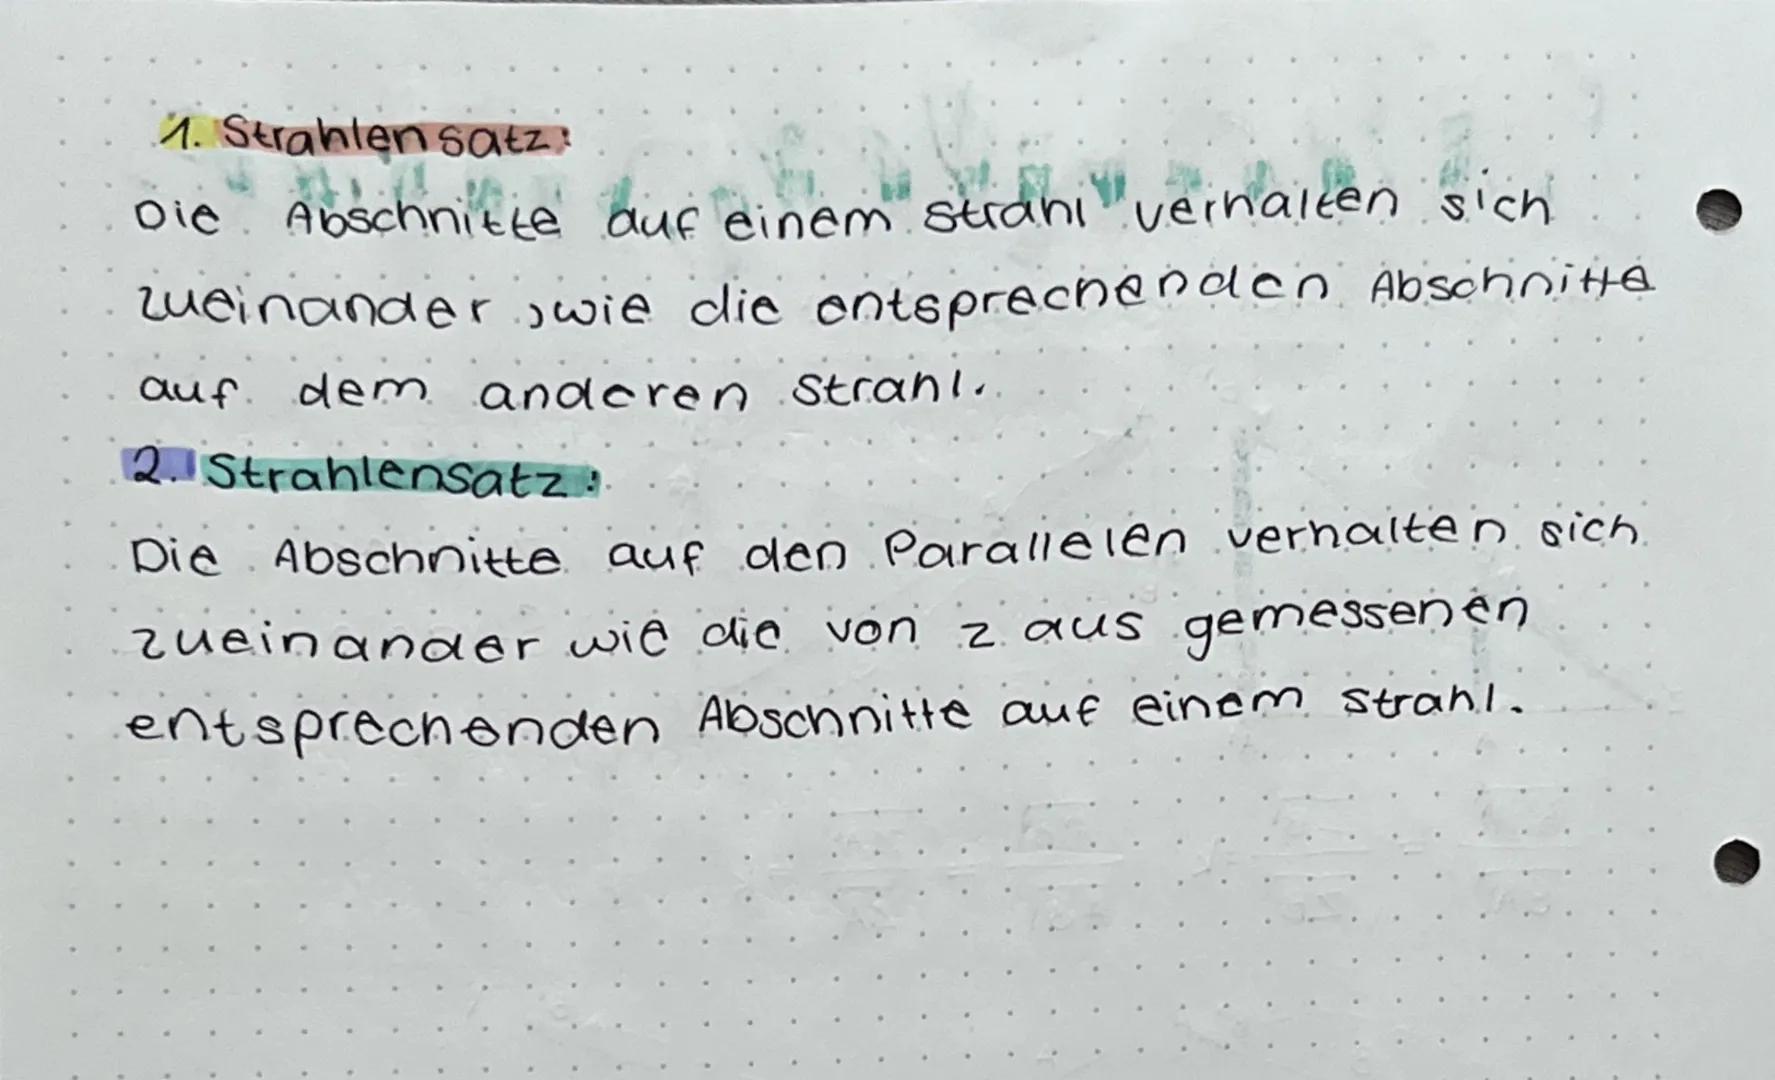 1. Strahlensatz:
Die Abschnitte auf einem Strahl verhalten sich
zueinander, wie die entsprechenden Abschnitte
auf dem anderen Strahl.
2. Strahlensatz:
Die Abschnitte auf den Parallelen verhalten sich
zueinander wie die von z aus gemessenen
entsprechenden Abschnitte auf einem Strahl.